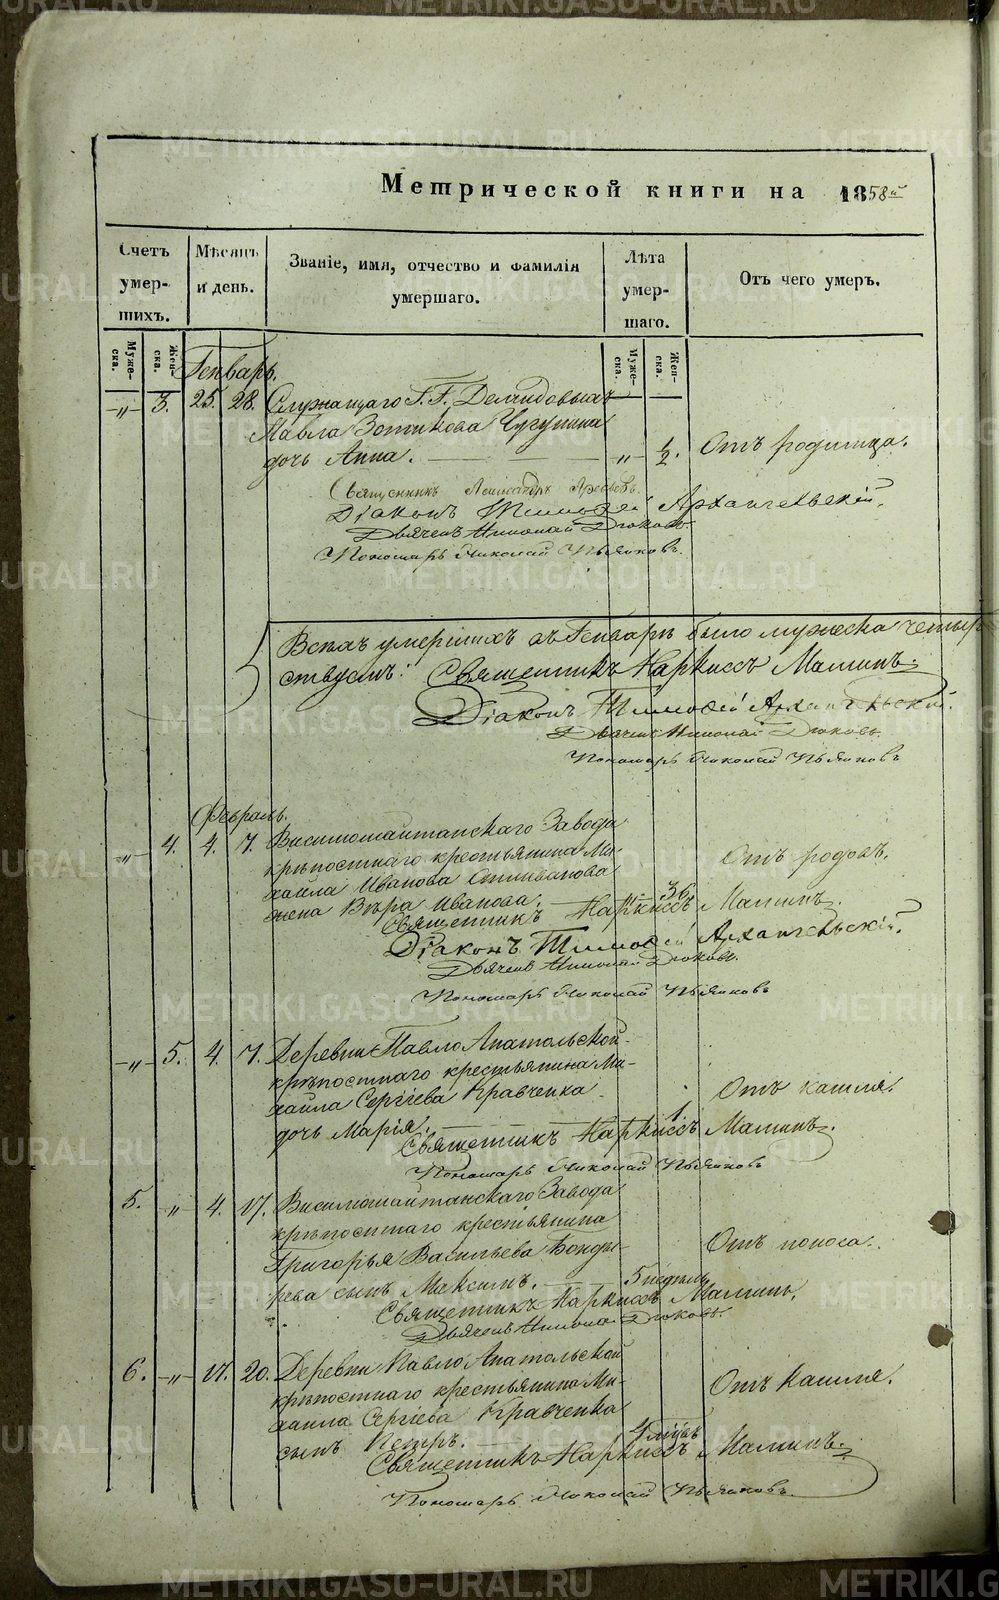 Метрической книги на 1858й
Счетъ умер-шихъ.
Мѣсяцъ и день.
Званіе, имя, отчество и фамилія умершаго.
Лѣта умер-шаго.
Отъ чего умеръ.
Муже-ска.
Жен-ска.
Муже-ска.
Жен-ска.
Генварь.
-„- 3. 25. 28. Служащаго Г.Г. Демидовыхъ
Павла Зотикова Чугунина
дочь Анна. -„- 1/2. Отъ родимца.
Священникъ
Діаконъ Тимоѳей Архангельскій.
Дьячекъ Николай Дюковъ.
Пономарь Николай Пьянковъ.
Всѣхъ умершихъ въ Генварѣ было мужеска четыре
Священникъ Наркиссъ Маминъ.
Діаконъ Тимоѳей Архангельскій.
Дьячекъ Николай Дюковъ.
Пономарь Николай Пьянковъ
Февраль.
-„- 4. 4. 7. Висимошайтанскаго Завода
крѣпостнаго крестьянина Ми-
хаила Иванова
жена Вѣра Иванова. 36. Отъ родовъ.
Священникъ Наркиссъ Маминъ.
Діаконъ Тимоѳей Архангельскій.
Дьячекъ Николай Дюковъ.
Пономарь Николай Пьянковъ
-„- 5. 4. 7. Деревни Павло Анатольской
крѣпостнаго крестьянина Ми-
хаила Сергіева Кравченка
дочь Марія. 1. Отъ кашля.
Священникъ Наркиссъ Маминъ.
Пономарь Николай Пьянковъ
5. -„- 4. 17. Висимошайтанскаго Завода
крѣпостнаго крестьянина
Григорья Васильева Бонды-
рева сынъ Максимъ. 5 недѣль Отъ поноса.
Священникъ Наркиссъ Маминъ.
Дьячекъ Николай Дюковъ.
6. -„- 17. 20. Деревни Павло Анатольской
крѣпостнаго крестьянина Ми-
хаила Сергіева Кравченка
сынъ Петръ. Отъ кашля.
Священникъ Наркиссъ Маминъ.
Пономарь Николай Пьянковъ.
METRIKI.GASO-URAL.RU